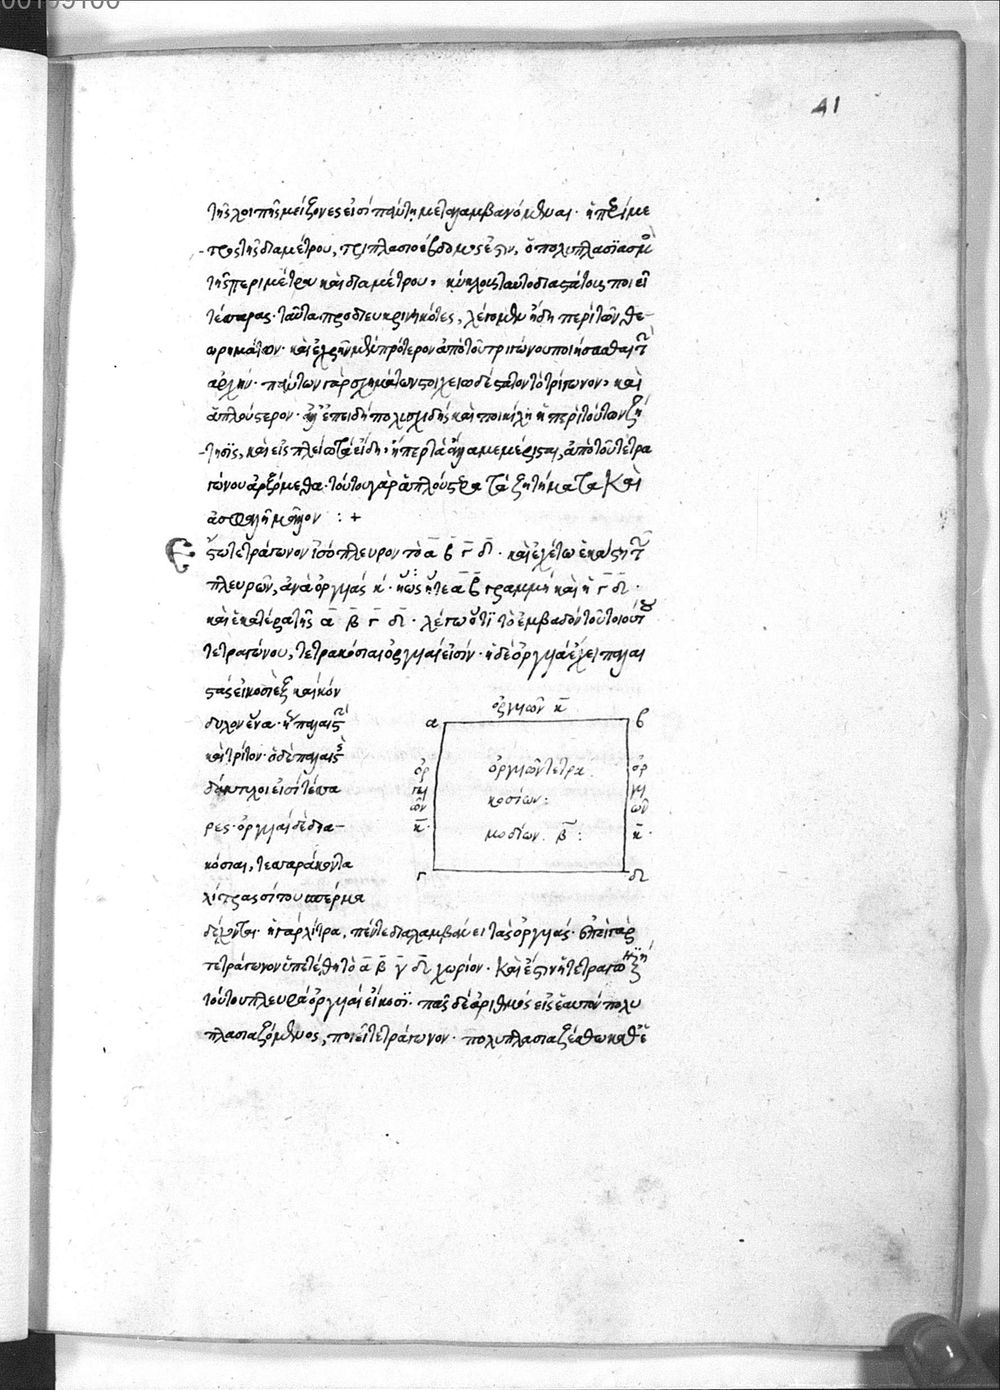 41
τῆς λοιπῆς μείζονες εἰσὶ πάντη μεταλαμβανόμεναι· ἡ περίμε
τρος τῆς διαμέτρου, τριπλασιοέβδομος ἐστιν, ὁ πολυπλασϊασμὸ
τῆς περιμέτρου καὶ διαμέτρου, κύκλους ταυτοδιαστάτους ποιεῖ
τέσσαρας· ταῦτα προδιευκρινηκότες, λέγομεν ἤδη περὶ τῶν θε-
ωρημάτων· καὶ ἐχρῆν μὲν πρότερον ἀπὸ τοῦ τριγώνου ποιήσασθαι τὴ
ἀρχήν· πάντων γὰρ σχημάτων στοιχειωδέστατον τὸ τρίγωνον, καὶ
ἁπλούστερον· ἐπειδὴ πολυσχιδὴς καὶ ποικίλη ἡ περὶ τούτων ζή
τησϊς, καὶ εἰς πλείω τὰ εἴδη, ἤπερ τὰ ἄλλα μεμέρισται, ἀπὸ τοῦ τετρα
γώνου ἀρξόμεθα· τούτου γὰρ ἁπλούστερα τὰ ζητήματα καὶ
ἀσφαλῆ μᾶλλον : +
Ἔστω τετράγωνον ἰσόπλευρον τὸ α β γ δ· καὶ ἐχέτω ἑκάστη τῶ
πλευρῶν, ἀνὰ ὀργυιὰς κ· ἥ τε α β γραμμὴ καὶ ἡ γ δ·
καὶ ἑκατέρα τῆς α β γ δ· λέγω ὅτϊ τὸ ἐμβαδὸν τοῦ τοιούτου
τετραγώνου, τετρακόσιαι ὀργυιαί εἰσιν· ἡ δὲ ὀργυιὰ ἔχει παλαι
στὰς εἰκοσιὲξ καὶ κόν
δυλον ἕνα· ἡ παλαιστὴ
καὶ τρίτον· ὁ δὲ παλαιστὸ
δάκτυλοι εἰσὶ τέσσα
ρες· ὀργυιαὶ δὲ δια-
κόσιαι, τεσσαράκοντα
λίτρας σίτου σπέρμα
δέχονται· ἡ γὰρ λίτρα, πέντε διαλαμβάνει τὰς ὀργυιάς· ἐπεὶ γὰρ
τετράγωνον ὑπετέθη τὸ α β γ δ χωρίον· καὶ ἔστιν ἡ τετραγω
τούτου πλευρὰ ὀργυιαὶ εἴκοσϊ· πᾶς δὲ ἀριθμὸς εἰς ἑαυτὸν πολυ
πλασιαζόμενος, ποιεῖ τετράγωνον· πολυπλασιαζέσθω καθ' ἑ
ὀργυιῶν κ
α β
ὀρ
γυι
ῶν
κ·
ὀργυιῶν τετρα
κοσίων:
μοδίων β:
ὀρ
γυι
ῶν
κ·
γ δ